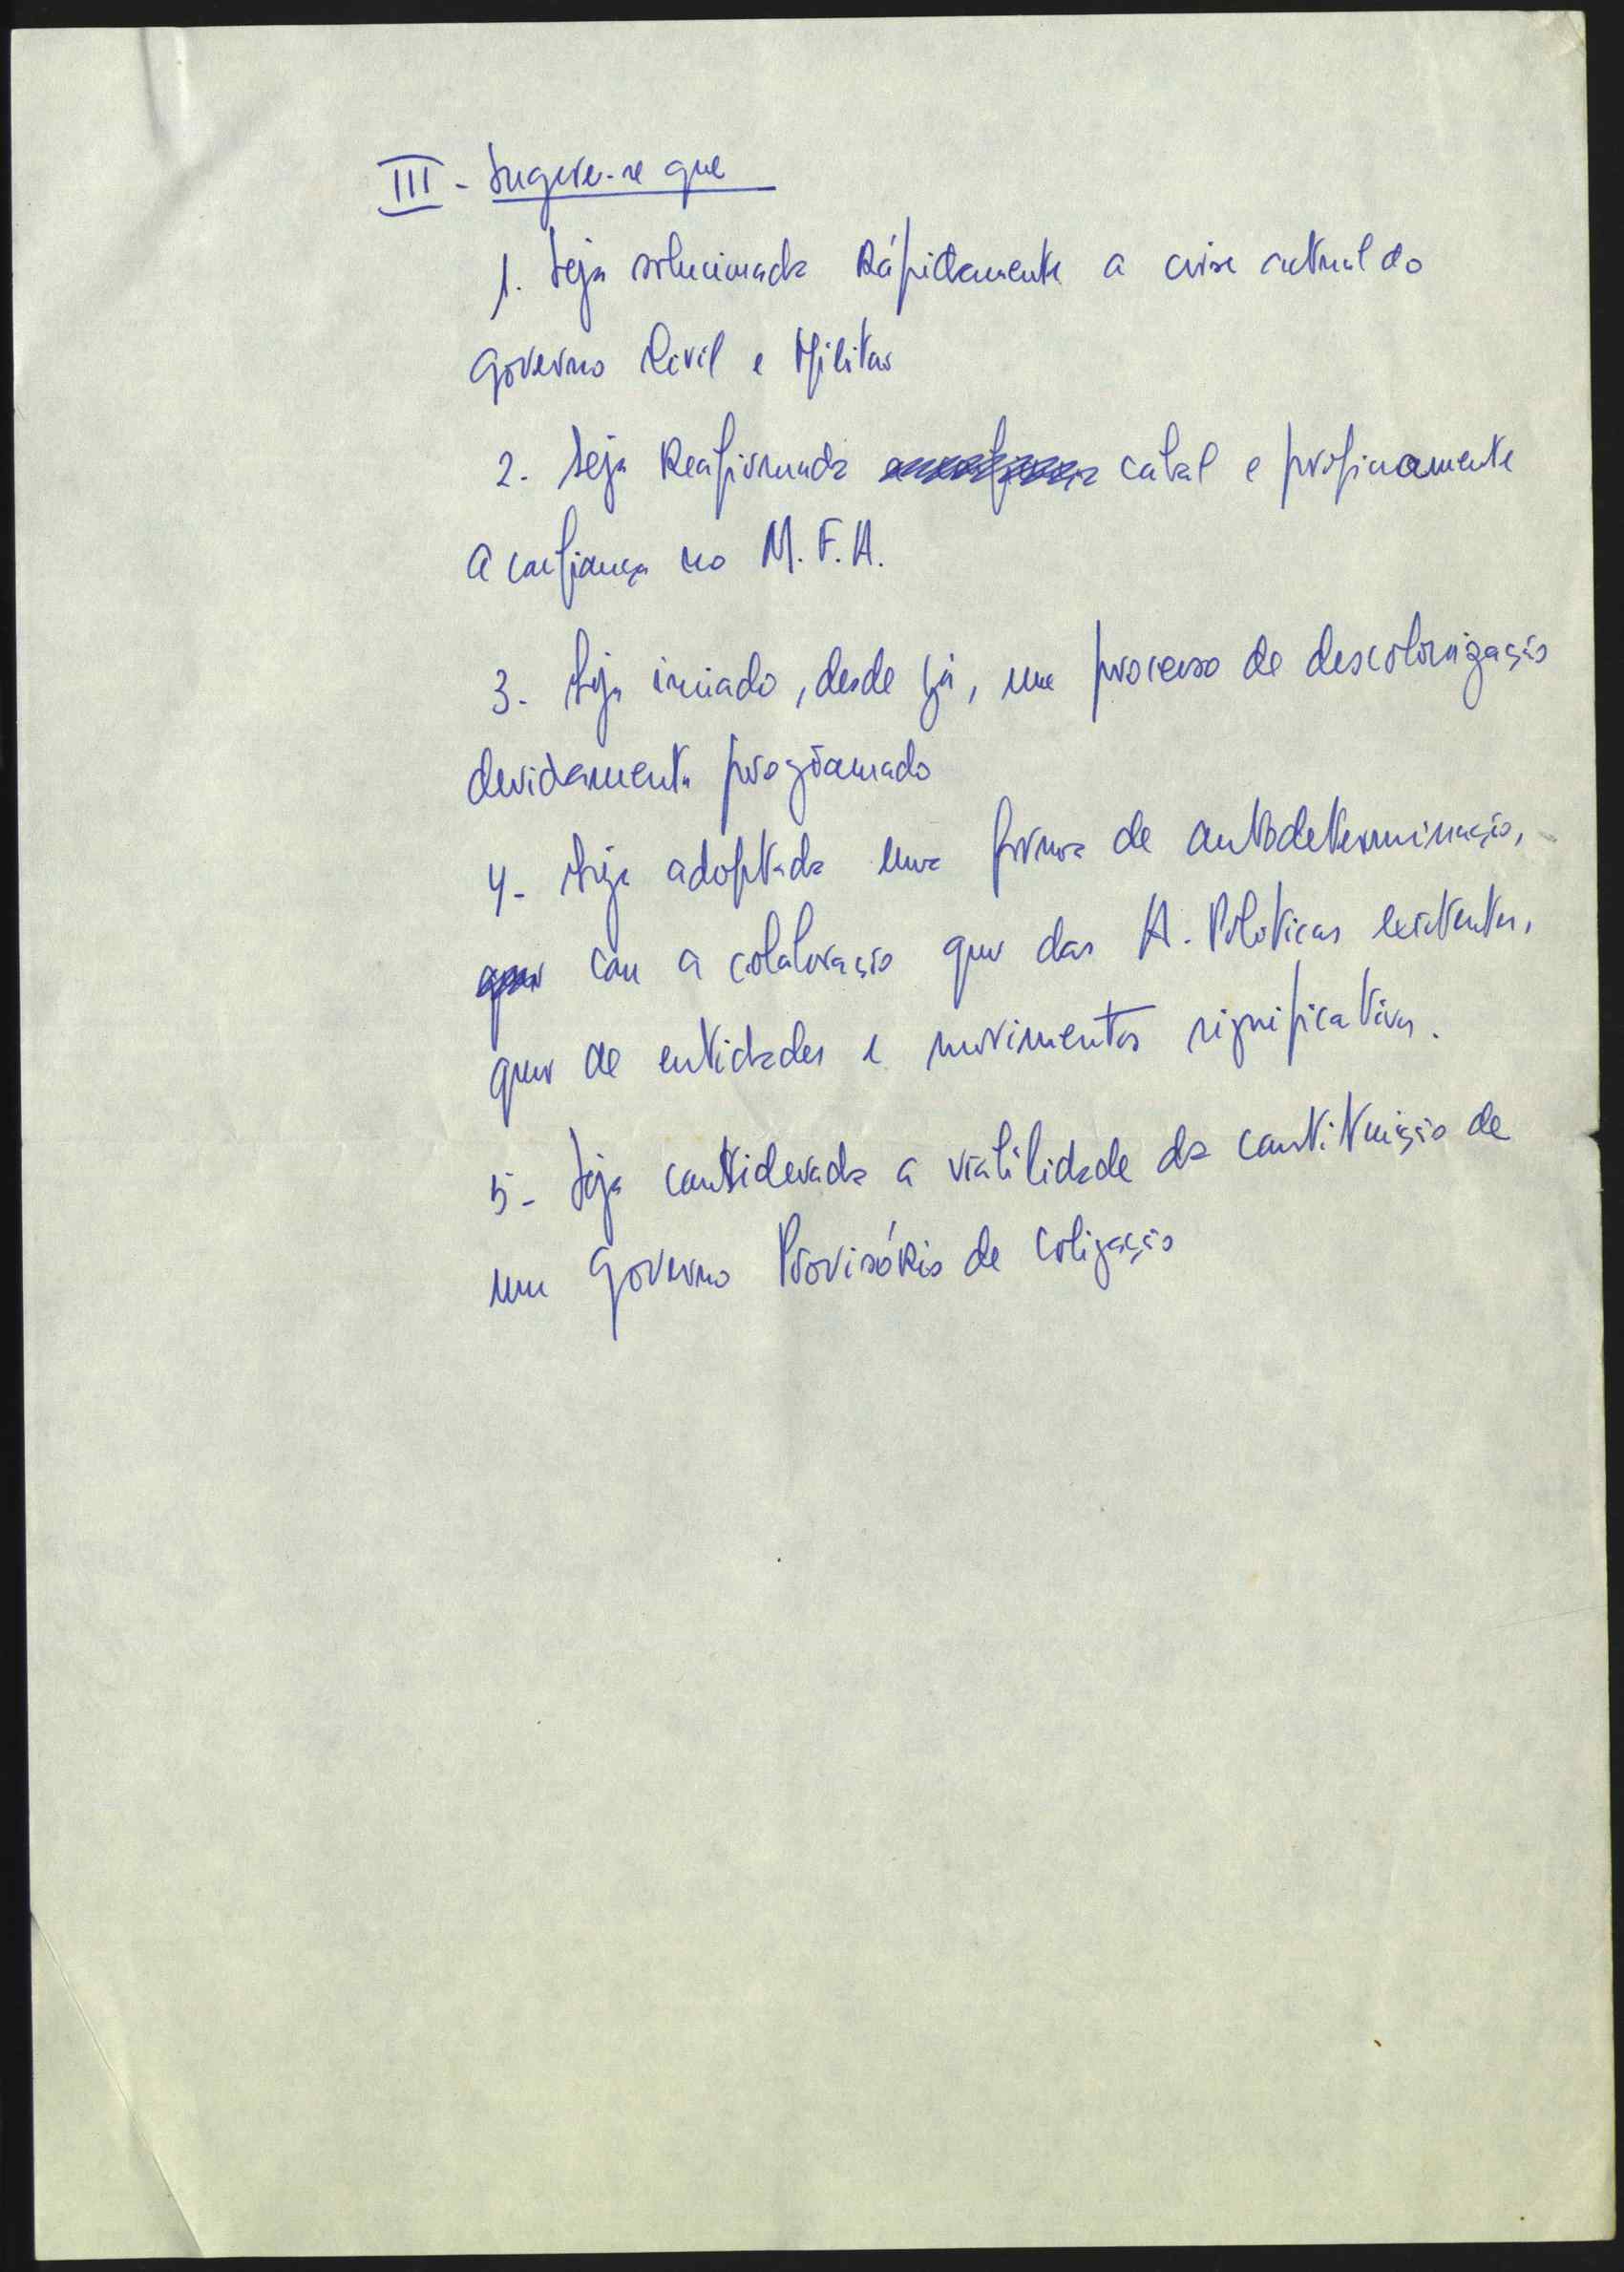 III - Sugere-se que
1. Seja solucionada Rápidamente a crise actual do
Governo Civil e Militar
2. Seja Reafirmada cabal e
a confiança no M.F.A.
3. Seja iniciado, desde já, um processo de descolonização
devidamente programado
4- Seja adoptada uma forma de autodeterminação,
com a colaboração quer das A. Políticas existentes,
quer de entidades e movimentos significativos.
5- Seja considerada a viabilidade da constituição de
um Governo Provisório de Coligação